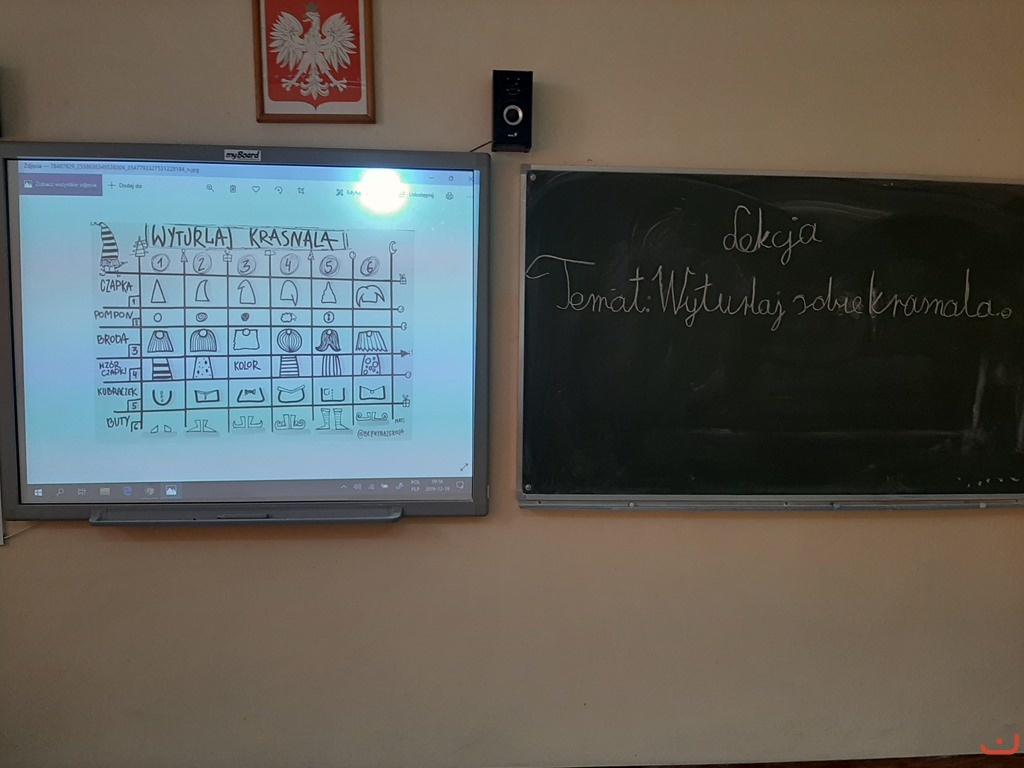 myBoard
Zobacz wszystkie zdjęcia
Dodaj do
Udostępnij
WYTURLAJ KRASNALA
1 2 3 4 5 6
CZAPKA 1
POMPON 2
BRODA 3
WZÓR CZAPKI 4 KOLOR
KUBRACZEK 5
BUTY 6
POL
09:56
PLP 2019-12-18
Lekcja
Temat: Wyturlaj sobie krasnala.